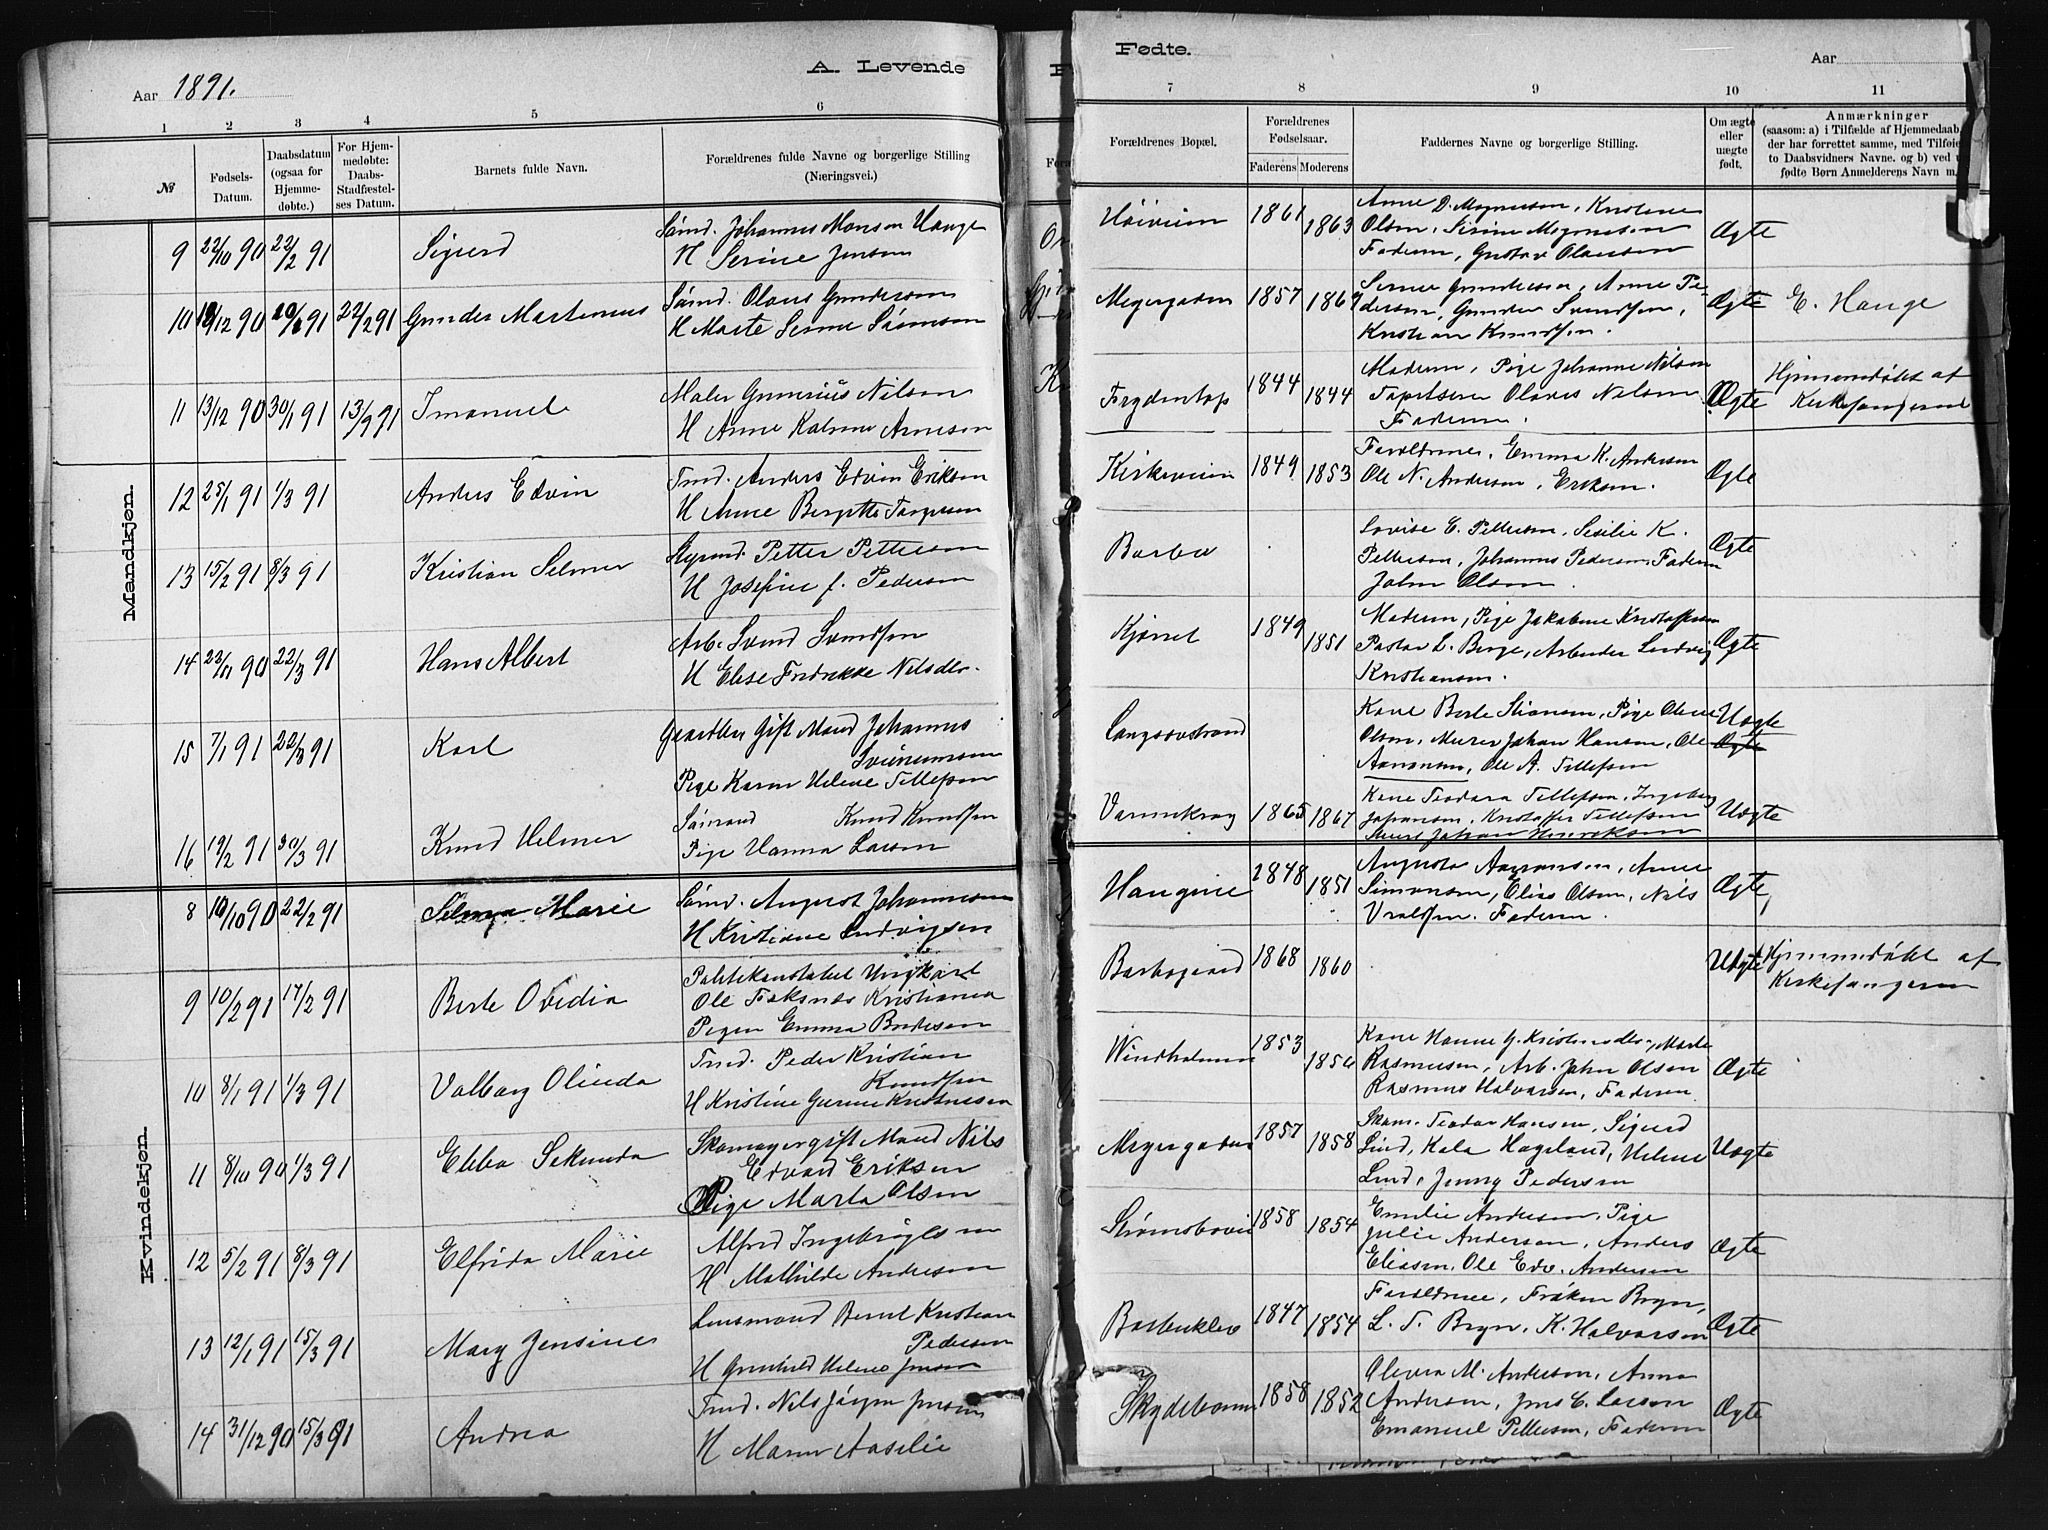 A. Levende
Fødte.
Aar 1891.
Aar
1 2 3 4 5 6
7 8 9 10 11
№
Fødsels-
Datum.
Daabsdatum
(ogsaa for
Hjemme-
døbte.)
For Hjem-
medøbte:
Daabs-
Stadfæstel-
ses Datum.
Barnets fulde Navn.
Forældrenes fulde Navne og borgerlige Stilling
(Næringsvei.)
Forældrenes Bopæl.
Forældrenes
Fødselsaar.
Faderens Moderens
Faddernes Navne og borgerlige Stilling.
Om ægte
eller
uægte
født.
Anmærkninger
(saasom: a) i Tilfælde af Hjemmedaab,
der har forrettet samme, med Tilføie
to Daabsvidners Navne. og b) ved
fødte Børn Anmelderens Navn m.
Mandkjøn.
9 22/10 90 22/2 91 Sigurd
Sømd. Johannes Monsen Hauge
H Serine Jensen
Høiveien 1861 1863
Anne D. Magnusen, Kristine
Olsen, Serine Magnusen
Faderen, Gustav Olausen
Ægte
10 12 90 91 22/2 91 Gunder Martinius
Sømd. Olaus Gundersen
H Marte Serine Sørensen
Meyergaden 1857 1867
Serine Gundersen, Anne Pe-
dersen, Gunder Svendsen,
Kristian Knudsen.
Ægte E. Hauge
11 13/12 90 30/1 91 13/9 91 Imanuel
Maler Gunerius Nilsen
H Anne Kalrine Arnesen
Frydentop 1844 1844
Moderen, Pige Johanne Nilsen
Tapetserer Olaves Nilsen
Faderen.
Ægte
Hjemmedøbt af
Kirkesangeren
12 25/1 91 1/3 91 Anders Edvin
Tmd. Anders Edvin Eriksen
H Anne Birgitte Torgersen
Kirkeveien 1849 1853
Forældrene, Emma K. Andersen
Ole N. Andersen, Eriksen.
Ægte
13 15/2 91 8/3 91 Kristian Selmer
Styrmd. Petter Pettersen
H Josefine f. Pedersen
Barbo
Lovise E. Pettersen, Sesilie K.
Pettersen, Johannes Pedersen, Faderen
John Olsen.
Ægte
14 23/11 90 22/3 91 Hans Albert
Arb. Svend Svendsen
H Elise Fredrikke Nilsdtr.
Kjønet 1849 1851
Moderen, Pige Jakobine Kristoffersen
Pastor L. Berge, Arbeider Ludvig
Kristiansen.
Ægte
15 7/1 91 22/3 91 Karl
Gaardbr. Gift Mand Johannes
Pige Karen Helene Tellefsen
Langsævstrand
Kone Berte Stiansen, Pige Oline
Olsen, Murer Johan Hansen, Ole
Aanonsen, Ole A. Tellefsen
Uægte
Ægte
16 19/2 91 30/3 91 Knud Helmer
Sømand Knud Knudsen
Pige Hanna Larsen
1865 1867
Kone Teodora Tellefsen, Ingeborg
Johansen, Kristoffer Tellefsen
Johan Henriksen
Uægte
Kvindekjøn.
8 16/10 90 22/2 91 Selma Marie
Sømd. August Johannesen
H Kristiane Ludvigsen
1848 1851
Augusta Aagronsen, Anne
Simonsen, Elias Olsen, Nils
Faderen.
Ægte
9 10/2 91 17/2 91 Berte Ovedia
Politikonstabel Ungkarl
Ole Kristiania
Pigen Emma
Barbogaard 1868 1860
Uægte
Hjemmedøbt af
Kirkesangeren
10 8/1 91 1/3 91 Valborg Olinda
Tmd. Peder Kristian
Knudsen
H Kristine Gurine Kristensen
Windholmen 1853 1856
Kone Hanne G. Kristensdtr., Marte
Rasmusen, Arb. John Olsen
Rasmus Halvorsen, Faderen
Ægte
11 8/10 90 1/3 91 Ebba Sekunda
Skomager gift Mand Nils
Edvard Eriksen
Pige Marta Olsen
Meyergaden 1857 1858
Skom. Teodor Hansen, Sigurd
Lind, Kala Hageland, Helene
Lind, Jenny Pedersen
Uægte
12 5/2 91 8/3 91 Elfrida Marie
Alfred Ingebrigtsen
H Mathilde Andersen
Strømsbovei 1858 1854
Emilie Andersen, Pige
Julie Andersen, Anders
Eliasen, Ole Edv. Andersen
Ægte
13 12/1 91 15/3 91 Mary Jensine
Lensmand Bernt Kristian
Pedersen
H Gunhild Helene Jensen
Barbuklev 1847 1854
Forældrene, Frøken Bryn,
L. T. Bryn, K. Halvorsen
Ægte
14 31/12 90 15/3 91 Andrea
Tmd. Nils Jørgen Jensen
H Maren Aaselie
Skydebanen 1858 1852
Olevia M. Andersen, Anna
Andersen, Jens C. Larsen
Emanuel Pettersen, Faderen
Ægte